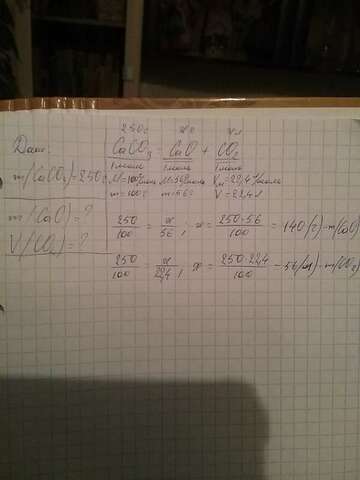 Дано:
m(CaCO₃)=250г
m(CaO)=?
V(CO₂)=?
250г xг xл
CaCO₃ = CaO + CO₂
1моль 1моль 1моль
M=100г/моль M=56г/моль Vm=22,4л/моль
m=100г m=56г V=22,4л
250/100 = x/56, x = 250·56/100 = 140(г)-m(CaO)
250/100 = x/22,4, x = 250·22,4/100 = 56(л)-m(CO₂)